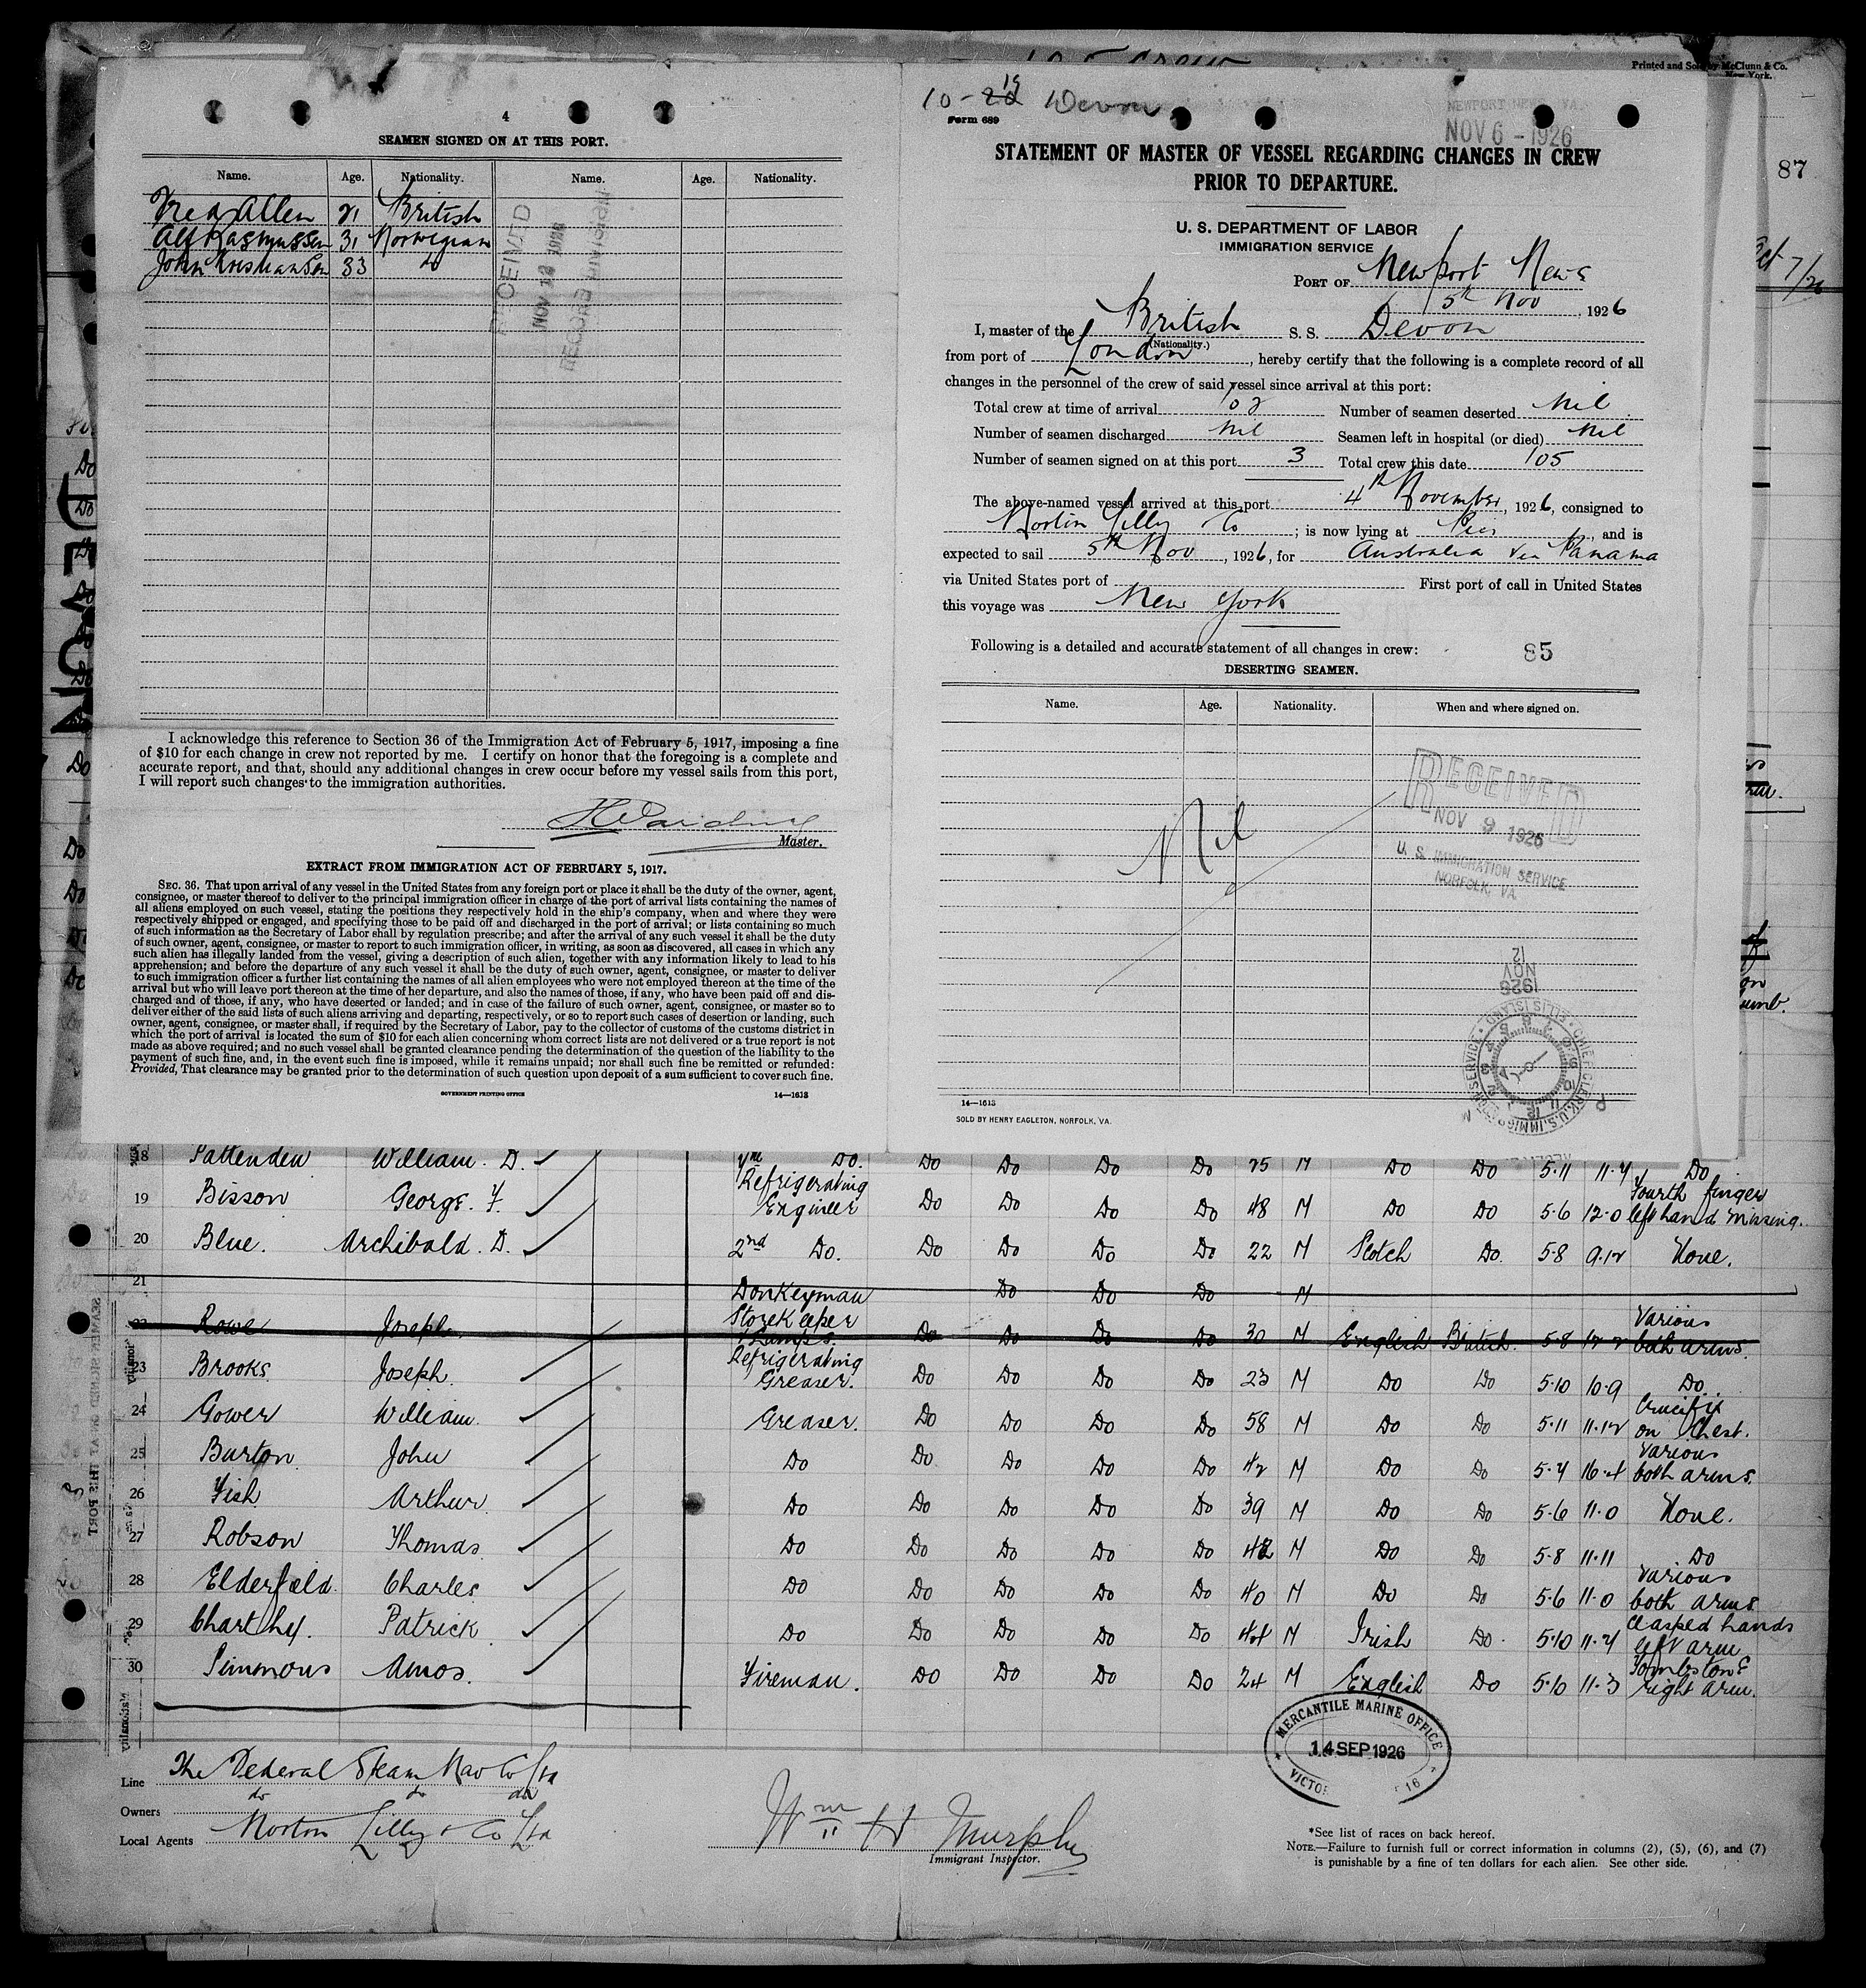 Printed and Sold by McClunn & Co.
New York.
87
4
SEAMEN SIGNED ON AT THIS PORT.
Name. Age. Nationality. Name. Age. Nationality.
Fred Allen 21 British
Alf Rasmussen 31 Norwegian
John Kristiansen 33 do
RECEIVED
NOV 12 1926
RECORD DIVISION
I acknowledge this reference to Section 36 of the Immigration Act of February 5, 1917, imposing a fine
of $10 for each change in crew not reported by me. I certify on honor that the foregoing is a complete and
accurate report, and that, should any additional changes in crew occur before my vessel sails from this port,
I will report such changes to the immigration authorities.
Master.
EXTRACT FROM IMMIGRATION ACT OF FEBRUARY 5, 1917.
SEC. 36. That upon arrival of any vessel in the United States from any foreign port or place it shall be the duty of the owner, agent,
consignee, or master thereof to deliver to the principal immigration officer in charge of the port of arrival lists containing the names of
all aliens employed on such vessel, stating the positions they respectively hold in the ship's company, when and where they were
respectively shipped or engaged, and specifying those to be paid off and discharged in the port of arrival; or lists containing so much
of such information as the Secretary of Labor shall by regulation prescribe; and after the arrival of any such vessel it shall be the duty
of such owner, agent, consignee, or master to report to such immigration officer, in writing, as soon as discovered, all cases in which any
such alien has illegally landed from the vessel, giving a description of such alien, together with any information likely to lead to his
apprehension; and before the departure of any such vessel it shall be the duty of such owner, agent, consignee, or master to deliver
to such immigration officer a further list containing the names of all alien employees who were not employed thereon at the time of the
arrival but who will leave port thereon at the time of her departure, and also the names of those, if any, who have been paid off and dis-
charged and of those, if any, who have deserted or landed; and in case of the failure of such owner, agent, consignee, or master so to
deliver either of the said lists of such aliens arriving and departing, respectively, or so to report such cases of desertion or landing, such
owner, agent, consignee, or master shall, if required by the Secretary of Labor, pay to the collector of customs of the customs district in
which the port of arrival is located the sum of $10 for each alien concerning whom correct lists are not delivered or a true report is not
made as above required; and no such vessel shall be granted clearance pending the determination of the question of the liability to the
payment of such fine, and, in the event such fine is imposed, while it remains unpaid; nor shall such fine be remitted or refunded:
Provided, That clearance may be granted prior to the determination of such question upon deposit of a sum sufficient to cover such fine.
GOVERNMENT PRINTING OFFICE 14—1613
10-19 Devon
Form 689
NEWPORT NEWS VA.
NOV 6 - 1926
STATEMENT OF MASTER OF VESSEL REGARDING CHANGES IN CREW
PRIOR TO DEPARTURE.
U. S. DEPARTMENT OF LABOR
IMMIGRATION SERVICE
PORT OF Newport News
5th Nov, 1926
I, master of the British S. S. Devon
(Nationality.)
from port of London, hereby certify that the following is a complete record of all
changes in the personnel of the crew of said vessel since arrival at this port:
Total crew at time of arrival 102 Number of seamen deserted Nil
Number of seamen discharged Nil Seamen left in hospital (or died) Nil
Number of seamen signed on at this port 3 Total crew this date 105
The above-named vessel arrived at this port 4th November, 1926, consigned to
Norton Lilly & Co; is now lying at Pier, and is
expected to sail 5th Nov, 1926, for Australia via Panama
via United States port of First port of call in United States
this voyage was New York
Following is a detailed and accurate statement of all changes in crew: 85
DESERTING SEAMEN.
Name. Age. Nationality. When and where signed on.
Nil
RECEIVED
NOV 9 1926
U. S. IMMIGRATION SERVICE
NORFOLK, VA.
NOV 12
1926
14—1613
SOLD BY HENRY EAGLETON, NORFOLK, VA.
18 Pattenden William. D. Do. Do Do Do Do 25 M Do Do 5·11 11·4 Do
19 Bisson George. F. Refrigerating Engineer Do Do Do Do 48 M Do Do 5·6 12·0 Fourth finger left hand missing.
20 Blue. Archibald. D. 2nd Do. Do Do Do Do 22 M Scotch Do. 5·8 9·12 None.
21 Donkeyman Do Do Do M
22 Rowe Joseph. Storekeeper & Lamps. Do Do Do Do 30 M English British. 5·8 12·2 Various both arms.
23 Brooks Joseph. Refrigerating Greaser. Do Do Do Do 23 M Do Do 5·10 10·9 Do.
24 Gower William. Greaser. Do Do Do Do 58 M Do Do 5·11 11·12 Crucifix on Chest.
25 Burton John Do Do Do Do Do 42 M Do Do 5·4 16·4 Various both arms.
26 Fish Arthur Do Do Do Do Do 39 M Do Do 5·6 11·0 None.
27 Robson Thomas. Do Do Do Do Do 42 M Do Do 5·8 11·11 Do
28 Elderfield. Charles. Do Do Do Do Do 40 M Do Do 5·6 11·0 Various both arms
29 Patrick Do Do Do Do Do 44 M Irish Do. 5·10 11·4 Clasped hands left arm
30 Simmons Amos. Fireman. Do Do Do Do 24 M English Do 5·10 11·3 Tombstone right arm.
MERCANTILE MARINE OFFICE
14 SEP 1926
Line The Federal Steam Nav Co Ltd
Owners do do do
Local Agents Norton Lilly & Co Ltd
Wm H Murphy
Immigrant Inspector.
*See list of races on back hereof.
NOTE.—Failure to furnish full or correct information in columns (2), (5), (6), and (7)
is punishable by a fine of ten dollars for each alien. See other side.